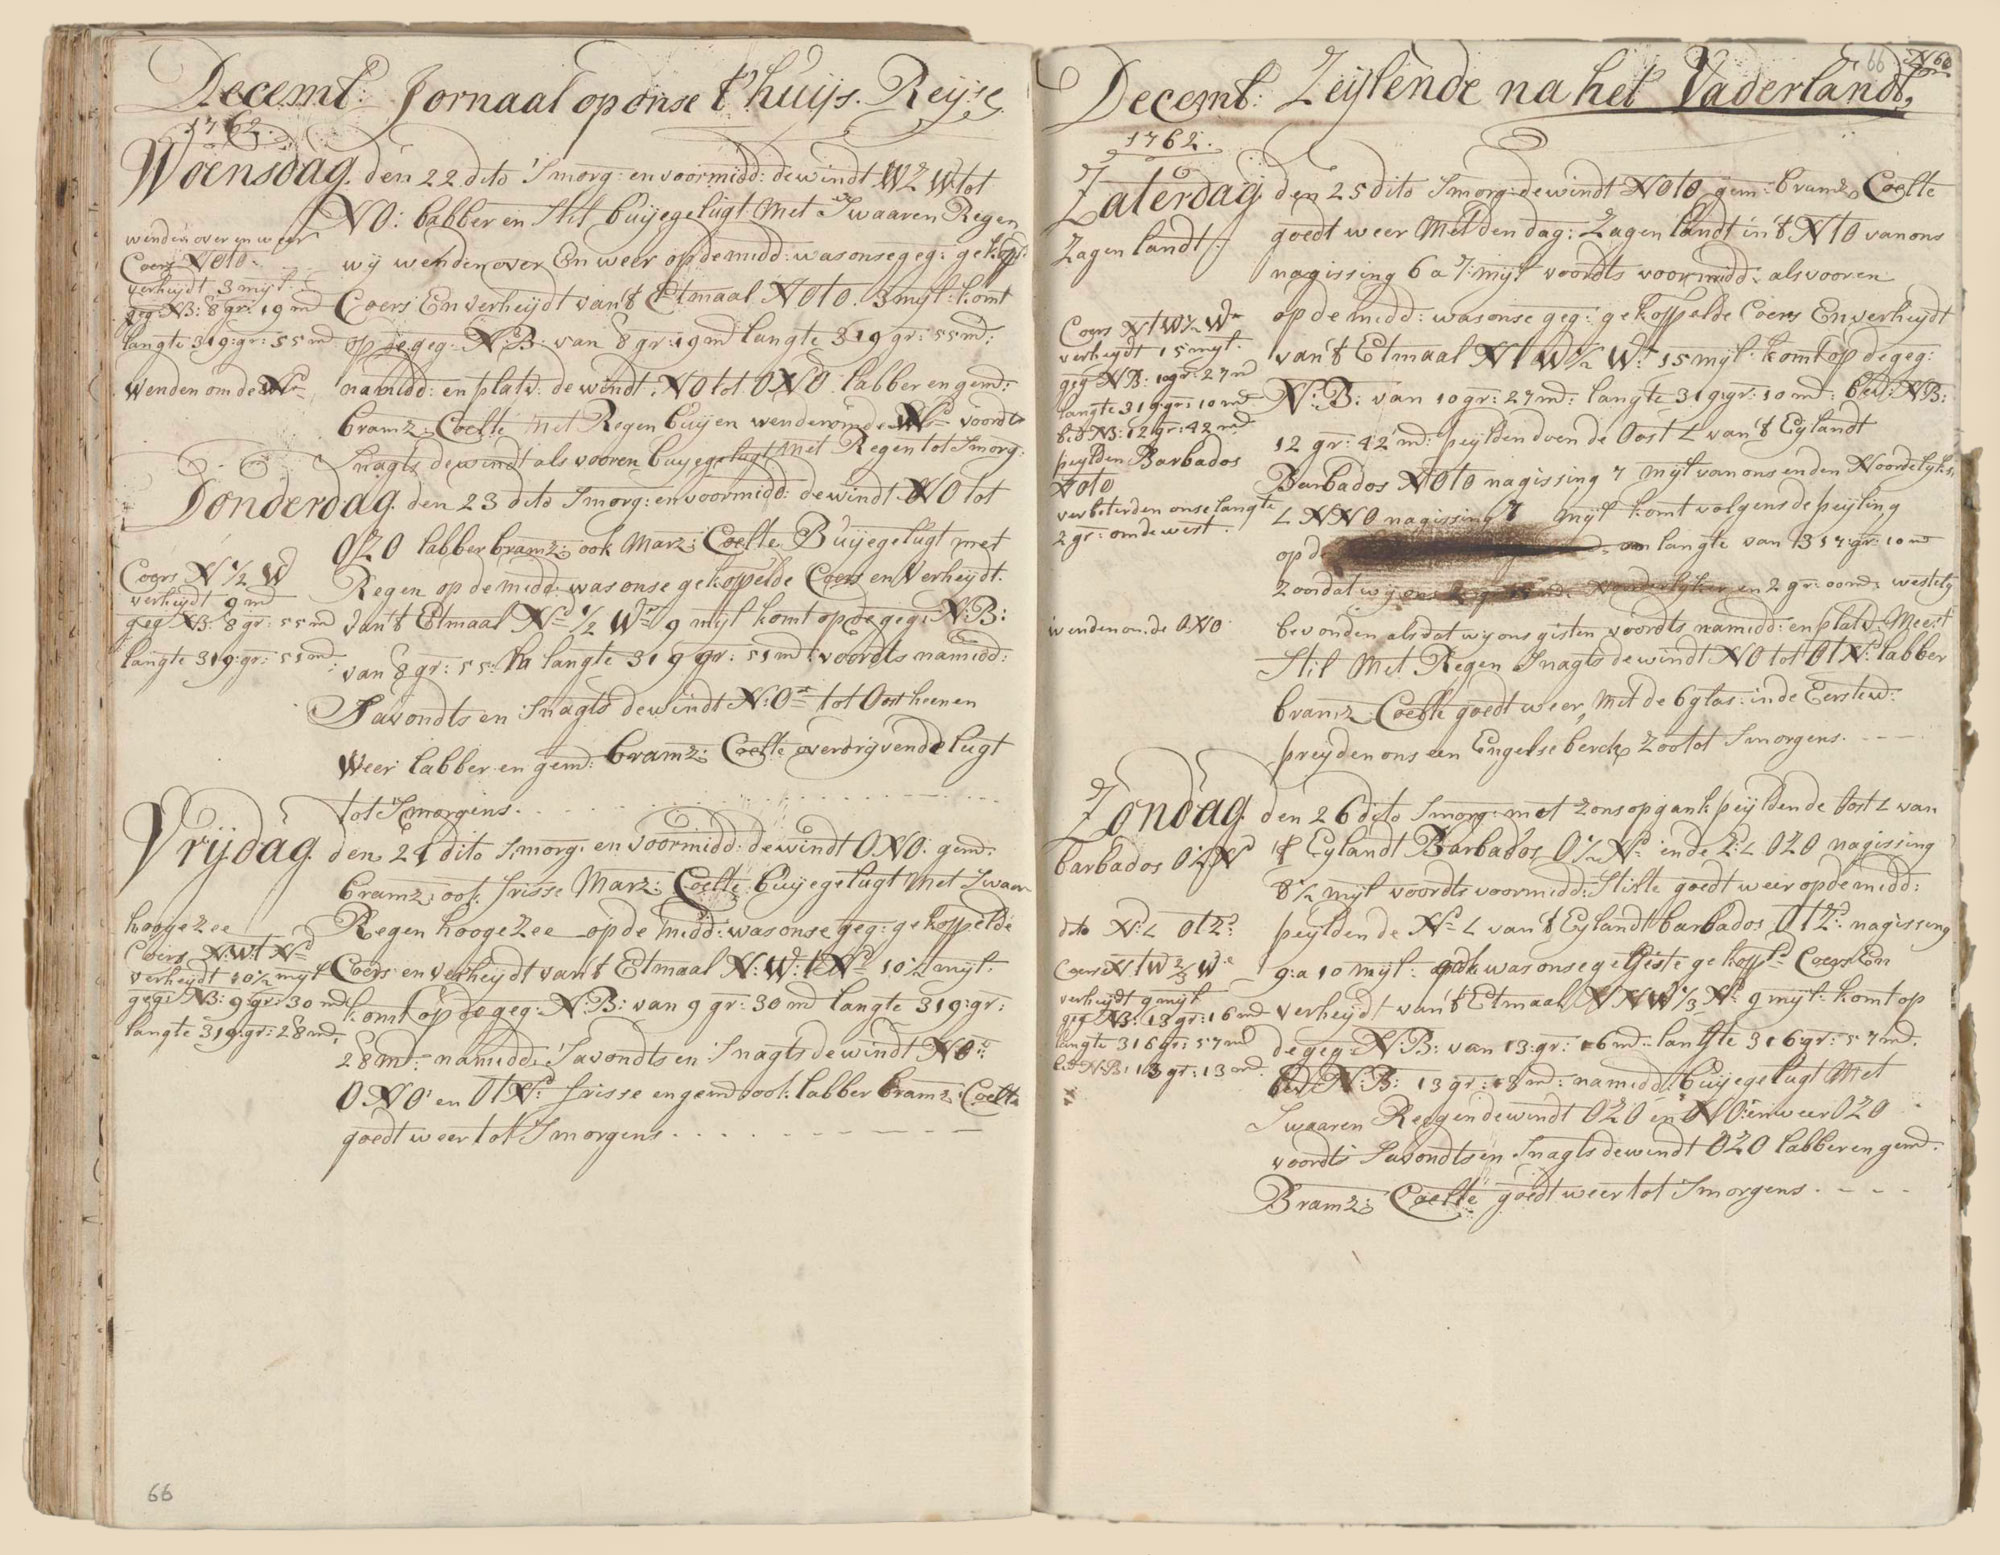 Decemb: Jornaal op onse t'huijs. Reijse
1762.
Woensdag den 22 dito Smorg: en voormidd: de windt WZW tot
NO: labber en Stil buijege lugt Met Swaaren Regen
wenden over en weer
wij wenden over En weer op de midd: was onse geg: gekop
Coers NOtO
verheijdt 3 mijl
Coers En verheijdt van 't Etmaal NOtO. 3 mijl: komt
geg NB: 8 gr: 19 md
langte 319: gr: 55 md
op de geg: NB: van 8 gr: 19 md langte 319 gr: 55 md:
wenden om de Nd
namidd: en platv: de windt: NO tot ONO labber en gemd:
bramz: Coelte met Regen buijen wenden om de Nd voordts
Snagts de windt als vooren buijege lugt Met Regen tot Smorg:
Donderdag den 23 dito Smorg: en voormidd: de windt NO tot
OZO labber bramz: ook Marz: Coelte Buijege lugt met
Coers N 1/2 W
Regen op de midd: was onse gekoppelde Coers en Verheijdt.
verheijdt 9 md
geg NB: 8 gr: 55 md
van 't Etmaal Nd 1/2 Wt 9 mijl komt op de geg: N:B:
langte 319: gr: 51 md
van 8 gr: 55: M langte 319 gr: 51 md: voordts namidd:
Savondts en Snagts de windt N:Ot tot Oost heen en
Weer labber en gemd: bramz: Coelte overdrijvende lugt
tot Smorgens. . . . . . .
Vrijdag den 24 dito Smorg: en voormidd: de windt ONO: gemd:
bramz: ook frisse Marz: Coelte buijege lugt Met Zwaar
hooge zee
Regen hooge Zee op de midd: was onse geg: gekoppelde
Coers N:Wt Nd
verheijdt 10 1/2 mijl
Coers en verheijdt van 't Etmaal N:W: t Nd 10 1/2 mijl:
geg: NB: 9: gr: 30 md
komt op de geg: N:B: van 9 gr: 30 md langte 319: gr:
langte 319: gr: 28 md:
28 M: namidd: Savondts en Snagts de windt NO:
O.NO: en OtNd frisse en gemd ook labber bramz: Coelte
goedt weer tot Smorgens. . . . .
66
66
Decemb: Zeijlende na het Vaderlandt,
1762.
Zaterdag den 25 dito Smorg: de windt NOtO gem: bramz: Coelte
Zagen landt:
goedt weer Met den dag: Zagen landt in 't NtO van ons
na gissing 6 a 7: mijl voordts voormidd: als vooren
op de midd: was onse geg: gekoppelde Coers En verheijdt
Coers NtW 1/2 Wt
verheijdt 15 mijl.
van 't Etmaal Nt W 1/2 W: 15 mijl: komt op de geg:
geg NB: 10 gr: 27 md
langte 319: gr: 10 md
N:B: van 10 gr: 27 md: langte 319: gr: 10 md: bev: NB:
bev NB: 12 gr: 42 md
12 gr: 42 md: peijlden doen de Oost L van 't Eijlandt
peijlden Barbados
NOtO
Barbados NOtO na gissing 7 mijl van ons en den Noordelijks
verbeterden onse langte
L NNO na gissing 7 mijl komt volgens de peijling
2 gr: om de west.
op d langte van 317: gr: 10 md
Zoo dat wij en 2 gr: 00 md: westelij
wenden om de ONO
bevonden als dat wij ons gisten voordts namidd: en platv: Meest
Stil Met Regen Snagts de windt NO tot OtNd: labber
bramz: Coelte goedt weer, Met de 6 glas: in de Eerste w:
preijden ons een Engelse berck zoo tot Smorgens. - - -
Zondag den 26 dito Smorg: met zons opgank peijlden de Oost L van
barbados O 1/2 N
't Eijlandt Barbados O 1/2 Nd en de Z: L OZO na gissing
8 1/2 mijl voordts voormidd: Stille goedt weer op de midd:
dito N: L OtZ:
peijlden de Nd L van 't Eijlandt barbados OtZ: na gissing
Coers NtW 2/3 W:
9: a 10 mijl: ook was onse gegiste gekopp: Coers En
verheijdt 9 mijl
verheijdt van 't Etmaal NNW 1/3 N: 9 mijl: komt op
geg NB: 13 gr: 16 md
langte 316 gr: 57 md
de geg: N:B: van 13: gr: 16 md: langte 316: gr: 57 md.
bev NB: 13 gr: 13 md.
bev: N:B: 13 gr: 18 md: namidd: buijege lugt Met
Swaaren Reegen de windt OZO en NO: en weer OZO
voordts Savondts en Snagts de windt OZO labber en gemd:
Bramz: Coelte goedt weer tot Smorgens. - - -